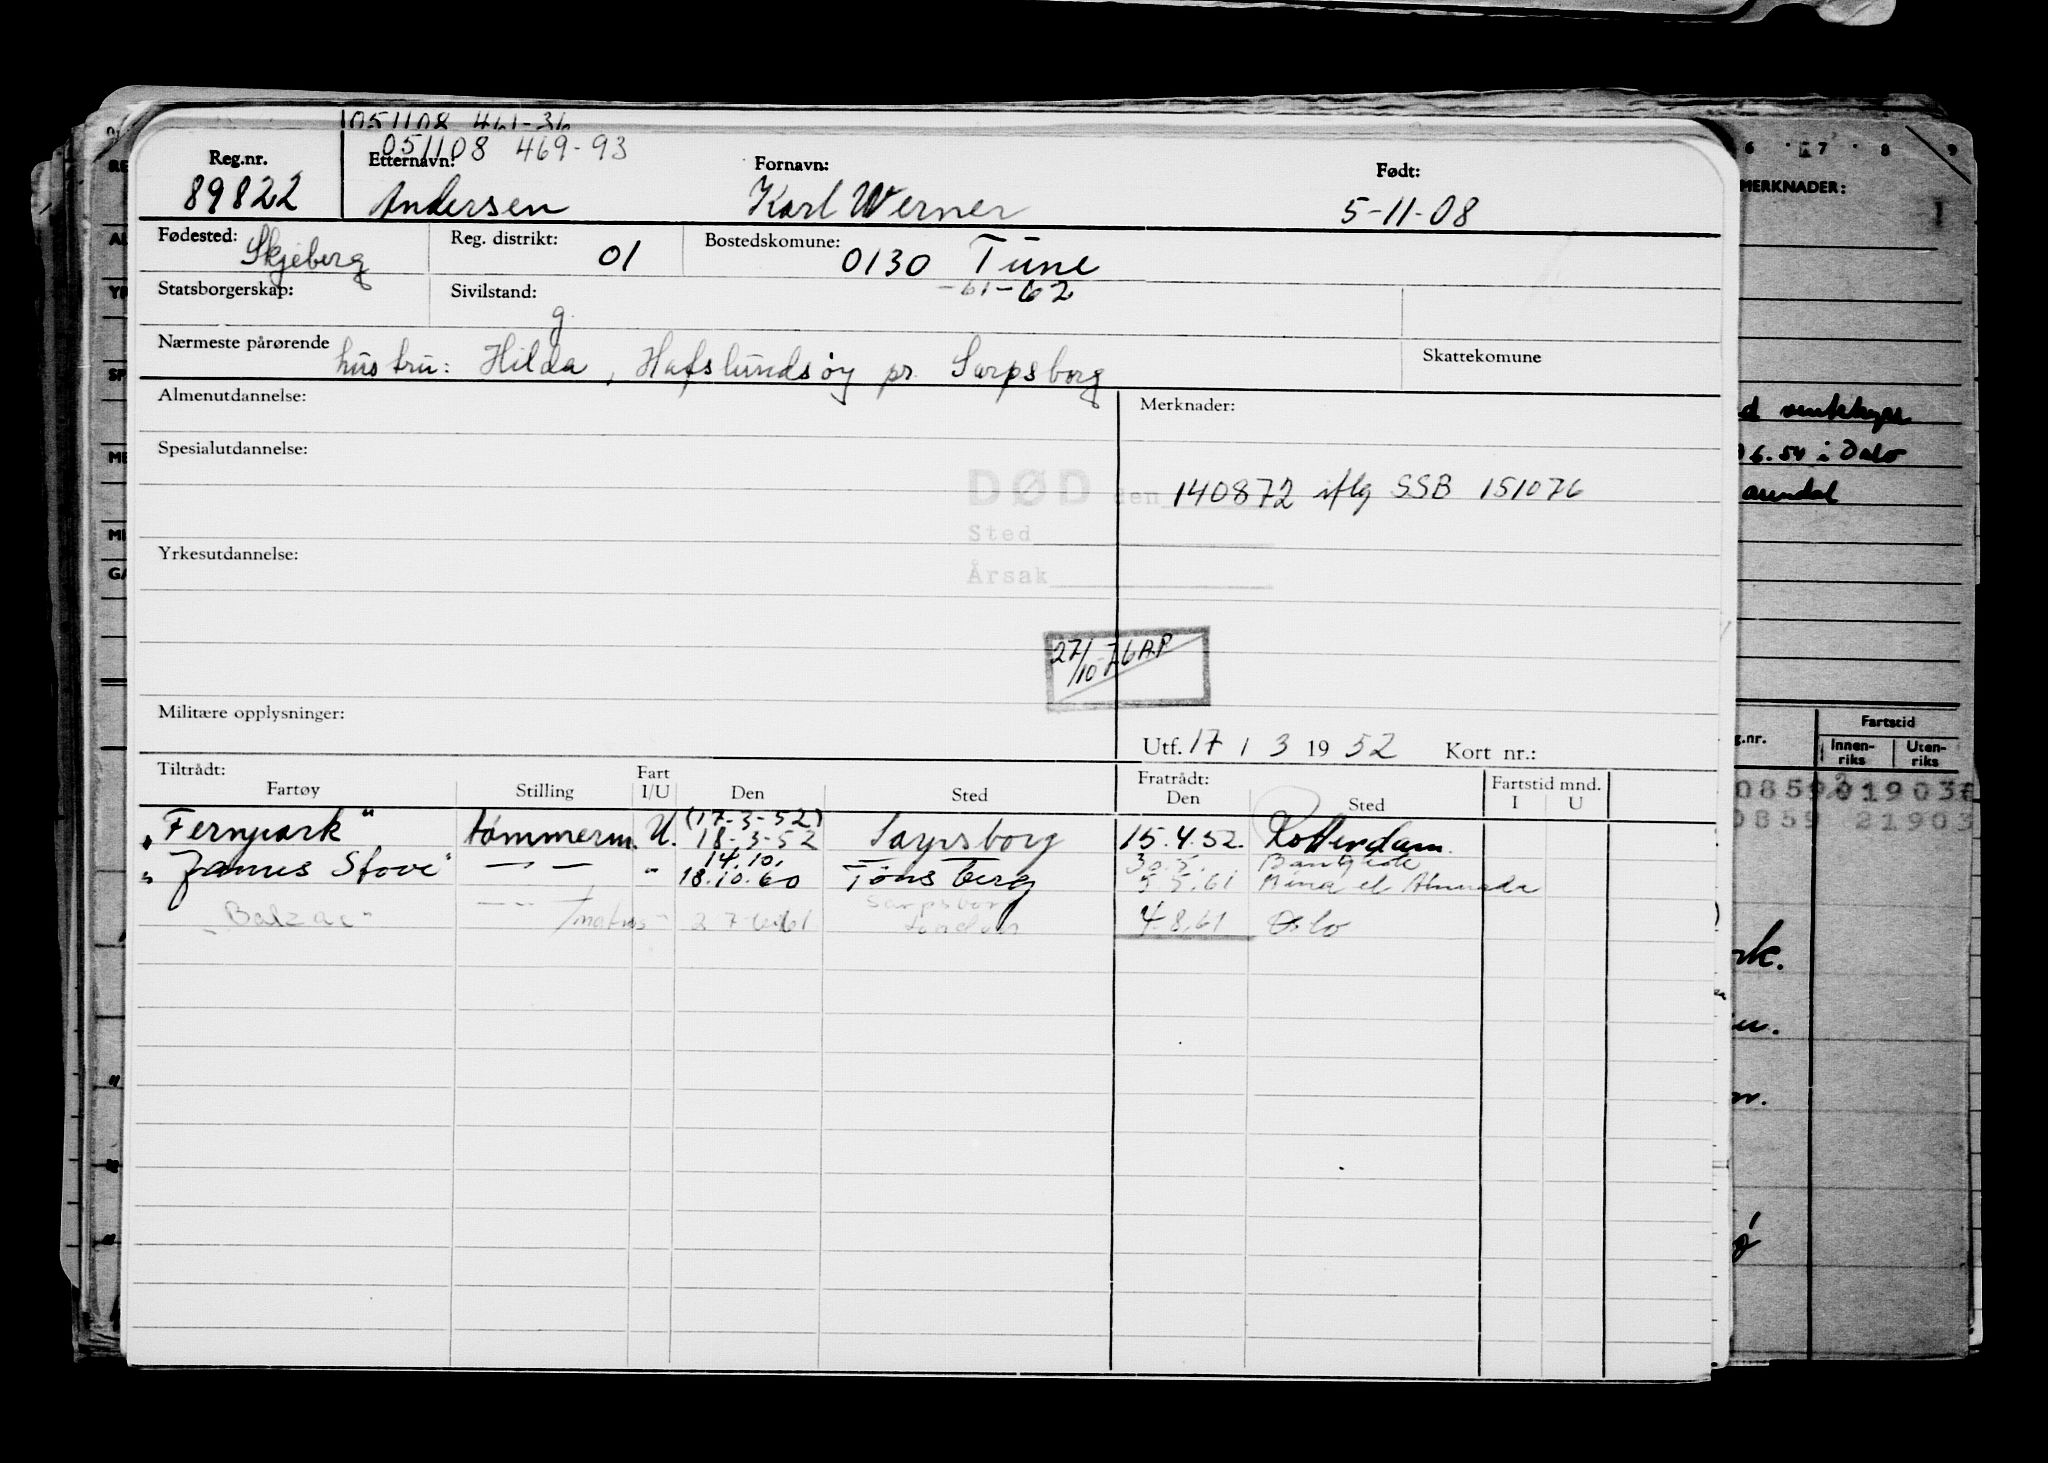 051108 461-36
051108 469-93
Reg.nr. Etternavn: Fornavn: Født:
89822 Andersen Karl Werner 5-11-08
Fødested: Skjeberg Reg. distrikt: 01 Bostedskomune: 0130 Tune
-61-62
Statsborgerskap: Sivilstand: g.
Nærmeste pårørende hustru: Hilda, Hafslundsøy pr. Sarpsborg Skattekomune
Almenutdannelse: Merknader:
Spesialutdannelse:
DØD den 140872 iflg SSB 151076
Sted
Årsak
Yrkesutdannelse:
27/10-76 AP
Militære opplysninger:
Utf. 17 / 3 1952 Kort nr.:
Tiltrådt: Fart Fratrådt: Fartstid mnd.
Fartøy Stilling I/U Den Sted Den Sted I U
(17-3-52)
"Fernpark" tømmerm. U. 18-3-52 Sarpsborg 15.4.52. Rotterdam
14.10. 30.5.
"James Stove" — — " 18.10.60 Tønsberg 5.5.61 Mina el
Sarpsborg
"Balzac" — " — /matros " 2 7-6-61 London 4.8.61 Oslo
6 7 8 9
MERKNADER:
1
6.54 i Oslo
Arendal
g.nr. Fartstid
Innen-riks Uten-riks
0859
0859 21903